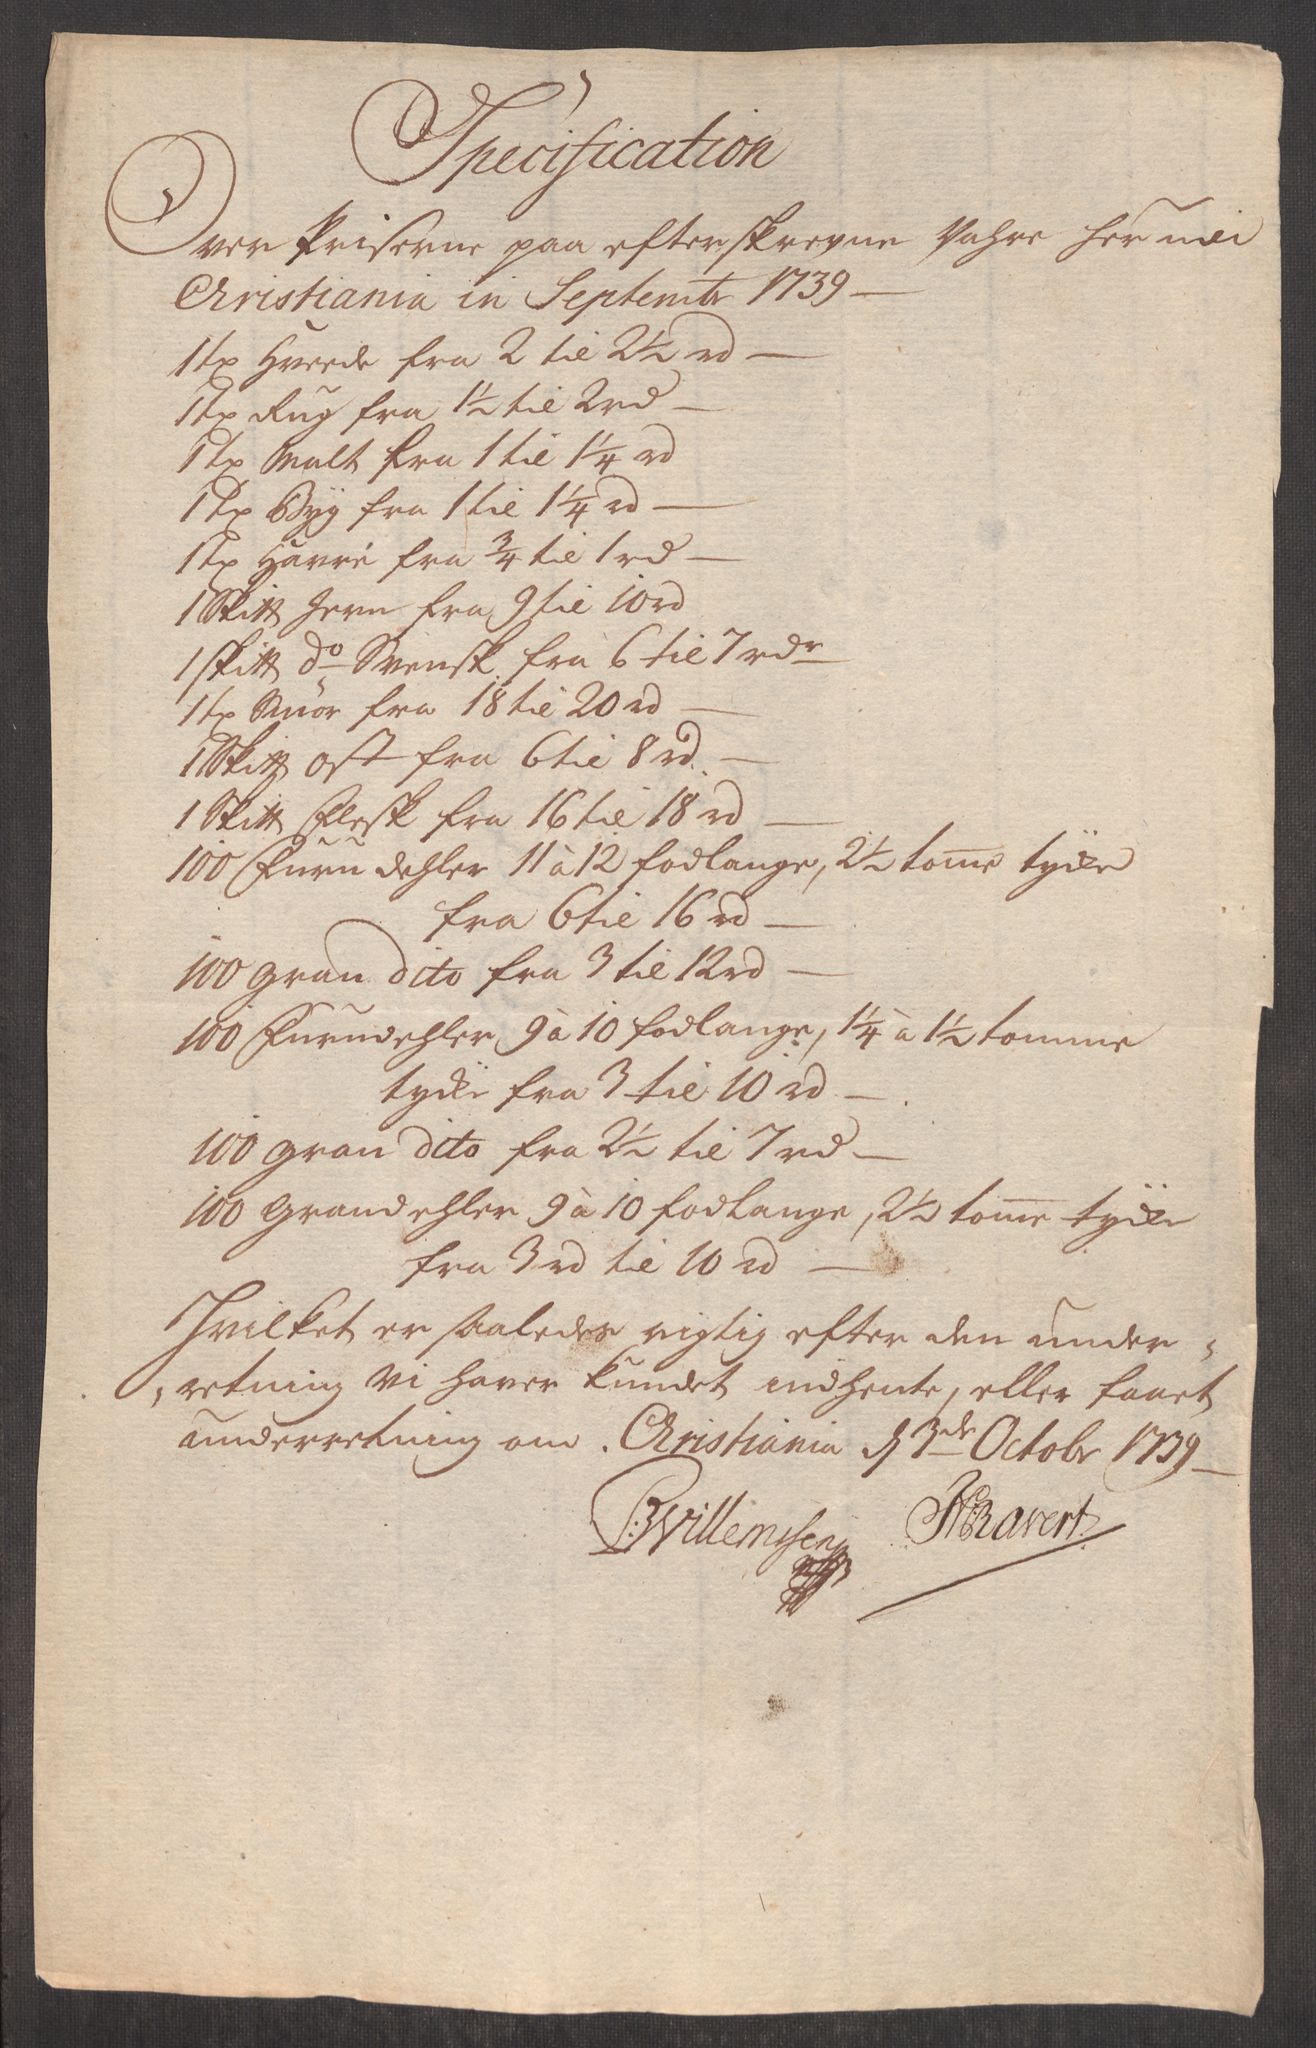 Specification
Over Priserne paa efterskrevne Vahre her udi
Christiania in Septembr 1739 —
1 tp Hvede fra 2 til 2½ rd —
1 tp Rug fra 1½ til 2 rd —
1 tp Malt fra 1 til 1¼ rd
1 tp Byg fra 1 til 1¼ rd —
1 tp Havre fra ¾ til 1 rd —
1 Skitt Jern fra 9 til 10 rd
1 skitt do Svensk fra 6 til 7 rdr
1 tp Smør fra 18 til 20 rd —
1 Skitt ost fra 6 til 8 rd. —
1 Skitt Flesk fra 16 til 18 rd —
100 Furu dehler 11 à 12 fodlange, 2½ tome tyke
fra 6 til 16 rd —
100 gran dito fra 3 til 12 rd —
100 Furudehler 9 à 10 fodlange, 1¼ à 1½ tomme
tyke fra 3 til 10 rd —
100 gran dito fra 2½ til 7 rd —
100 Grandehler 9 à 10 fodlange, 2½ tome tyke
fra 3 rd til 10 rd —
Hvilket er saaledes rigtig efter den under-
retning vi haver kundet indhente, eller faaet
underretning om. Christiania d 3de Octobr 1739 —
BWillemssen Ravert